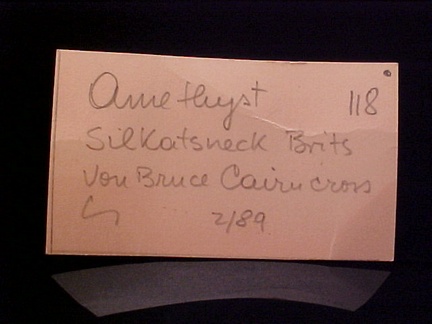 Amethyst 118
Silkatsneck Brits
von Bruce Cairncross
2/89